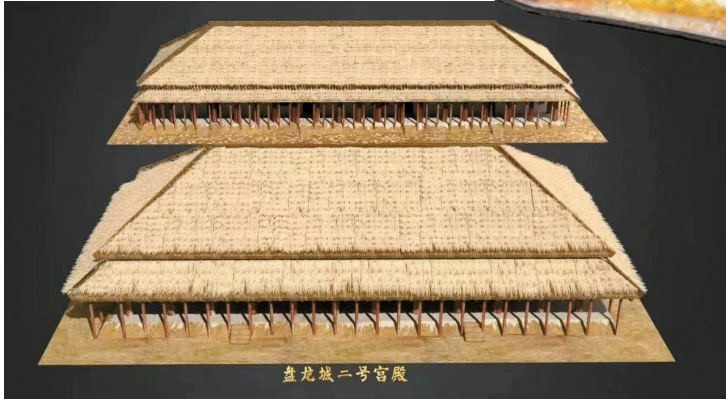 盘龙城二号宫殿